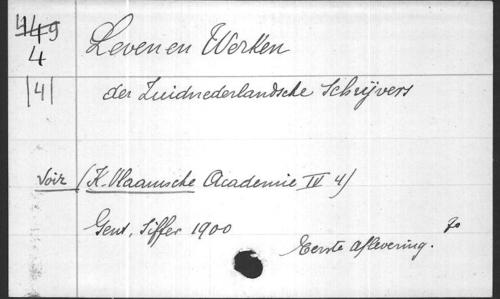 449
4
Leven en Werken
|4|
der Zuidnederlandsche Schrijvers
Voir (K. Vlaamsche Academie IV 4)
Gent, Siffer 1900
Eerste aflevering.